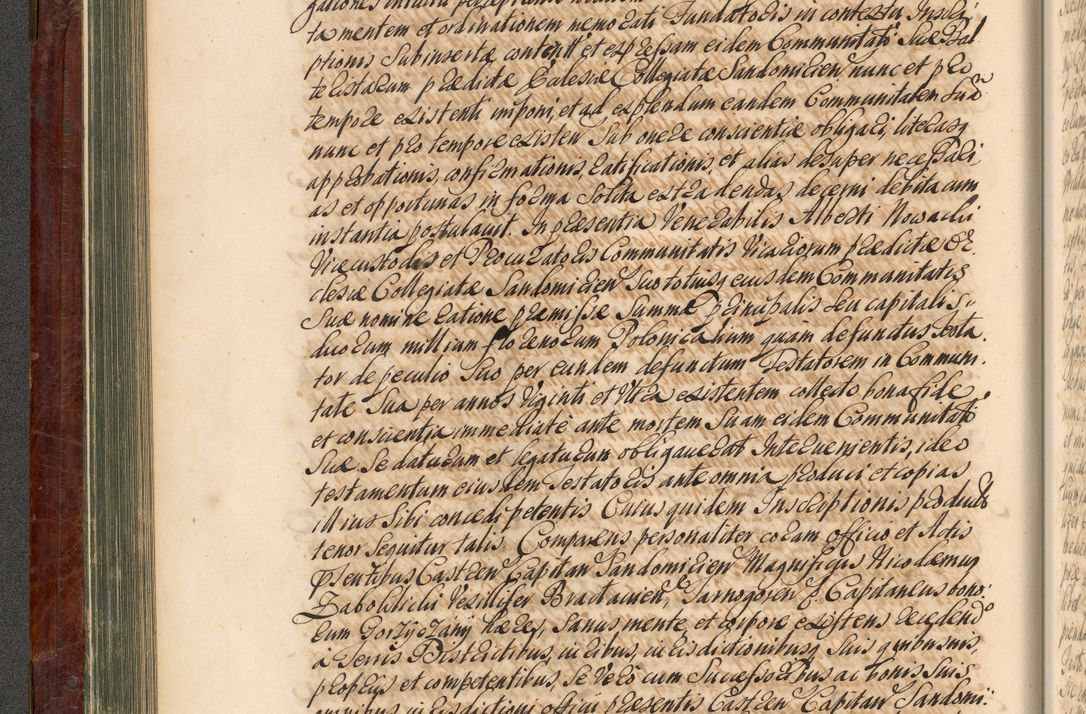 tamentem et ordinationem memorati Fundatoris in contextu Inscri
ptionis Sub insertæ content et expressam eidem Communitati Suæ
prædictæ Ecclesiæ Collegiatæ Sandomirien nunc et pro
tempore existenti imponi, et ad explendum eandem Communitatem
nunc et pro tempore existen Sub onere conscientiæ obligari, literasq
approbationis, confirmationis, ratificationis, et alias desuper necessari
as et opportunas in forma Solita extradendas decerni debita cum
instantia postulavit. In præsentia Venerabilis Alberti Nowacki
Vicecustodis et Procuratoris Communitatis Vicariorum prædictæ Ec
clesiæ Collegiatæ Sandomirien Suo totiusq eiusdem Communitatis
Suæ nomine ratione præmissæ Summæ Principalis Seu capitalis
duorum millium florenorum Polonicalium quam defunctus
tor de peculio Suo per eundem defunctum Testatorem in Communi
tate Sua per annos Viginti et Ultra existentem collecto bona fide
et conscientia immediate ante mortem Suam eidem Communitati
Suæ Se daturum et legaturum obligaverat Intervenientis, ideo
testamentum eiusdem Testatoris ante omnia produci et copias
illius Sibi concedi petentis Cuius quidem Inscriptionis
tenor Sequitur talis. Comparens personaliter coram officio et Actis
Castren Capitan Sandomirien Magnificus Nicodemus
Vexillifer Tarnogoren Capitaneus bono
rum hæres, Sanus mente et corpore existens recedendo
a Terris Districtibus, iuribus iurisdictionibusq Suis quibusvis,
proprijs et competentibus, Se Vero cum Successoribus ac bonis Suis
omnibus iurisdictioni officij præsentis Castren Capitan Sandomi